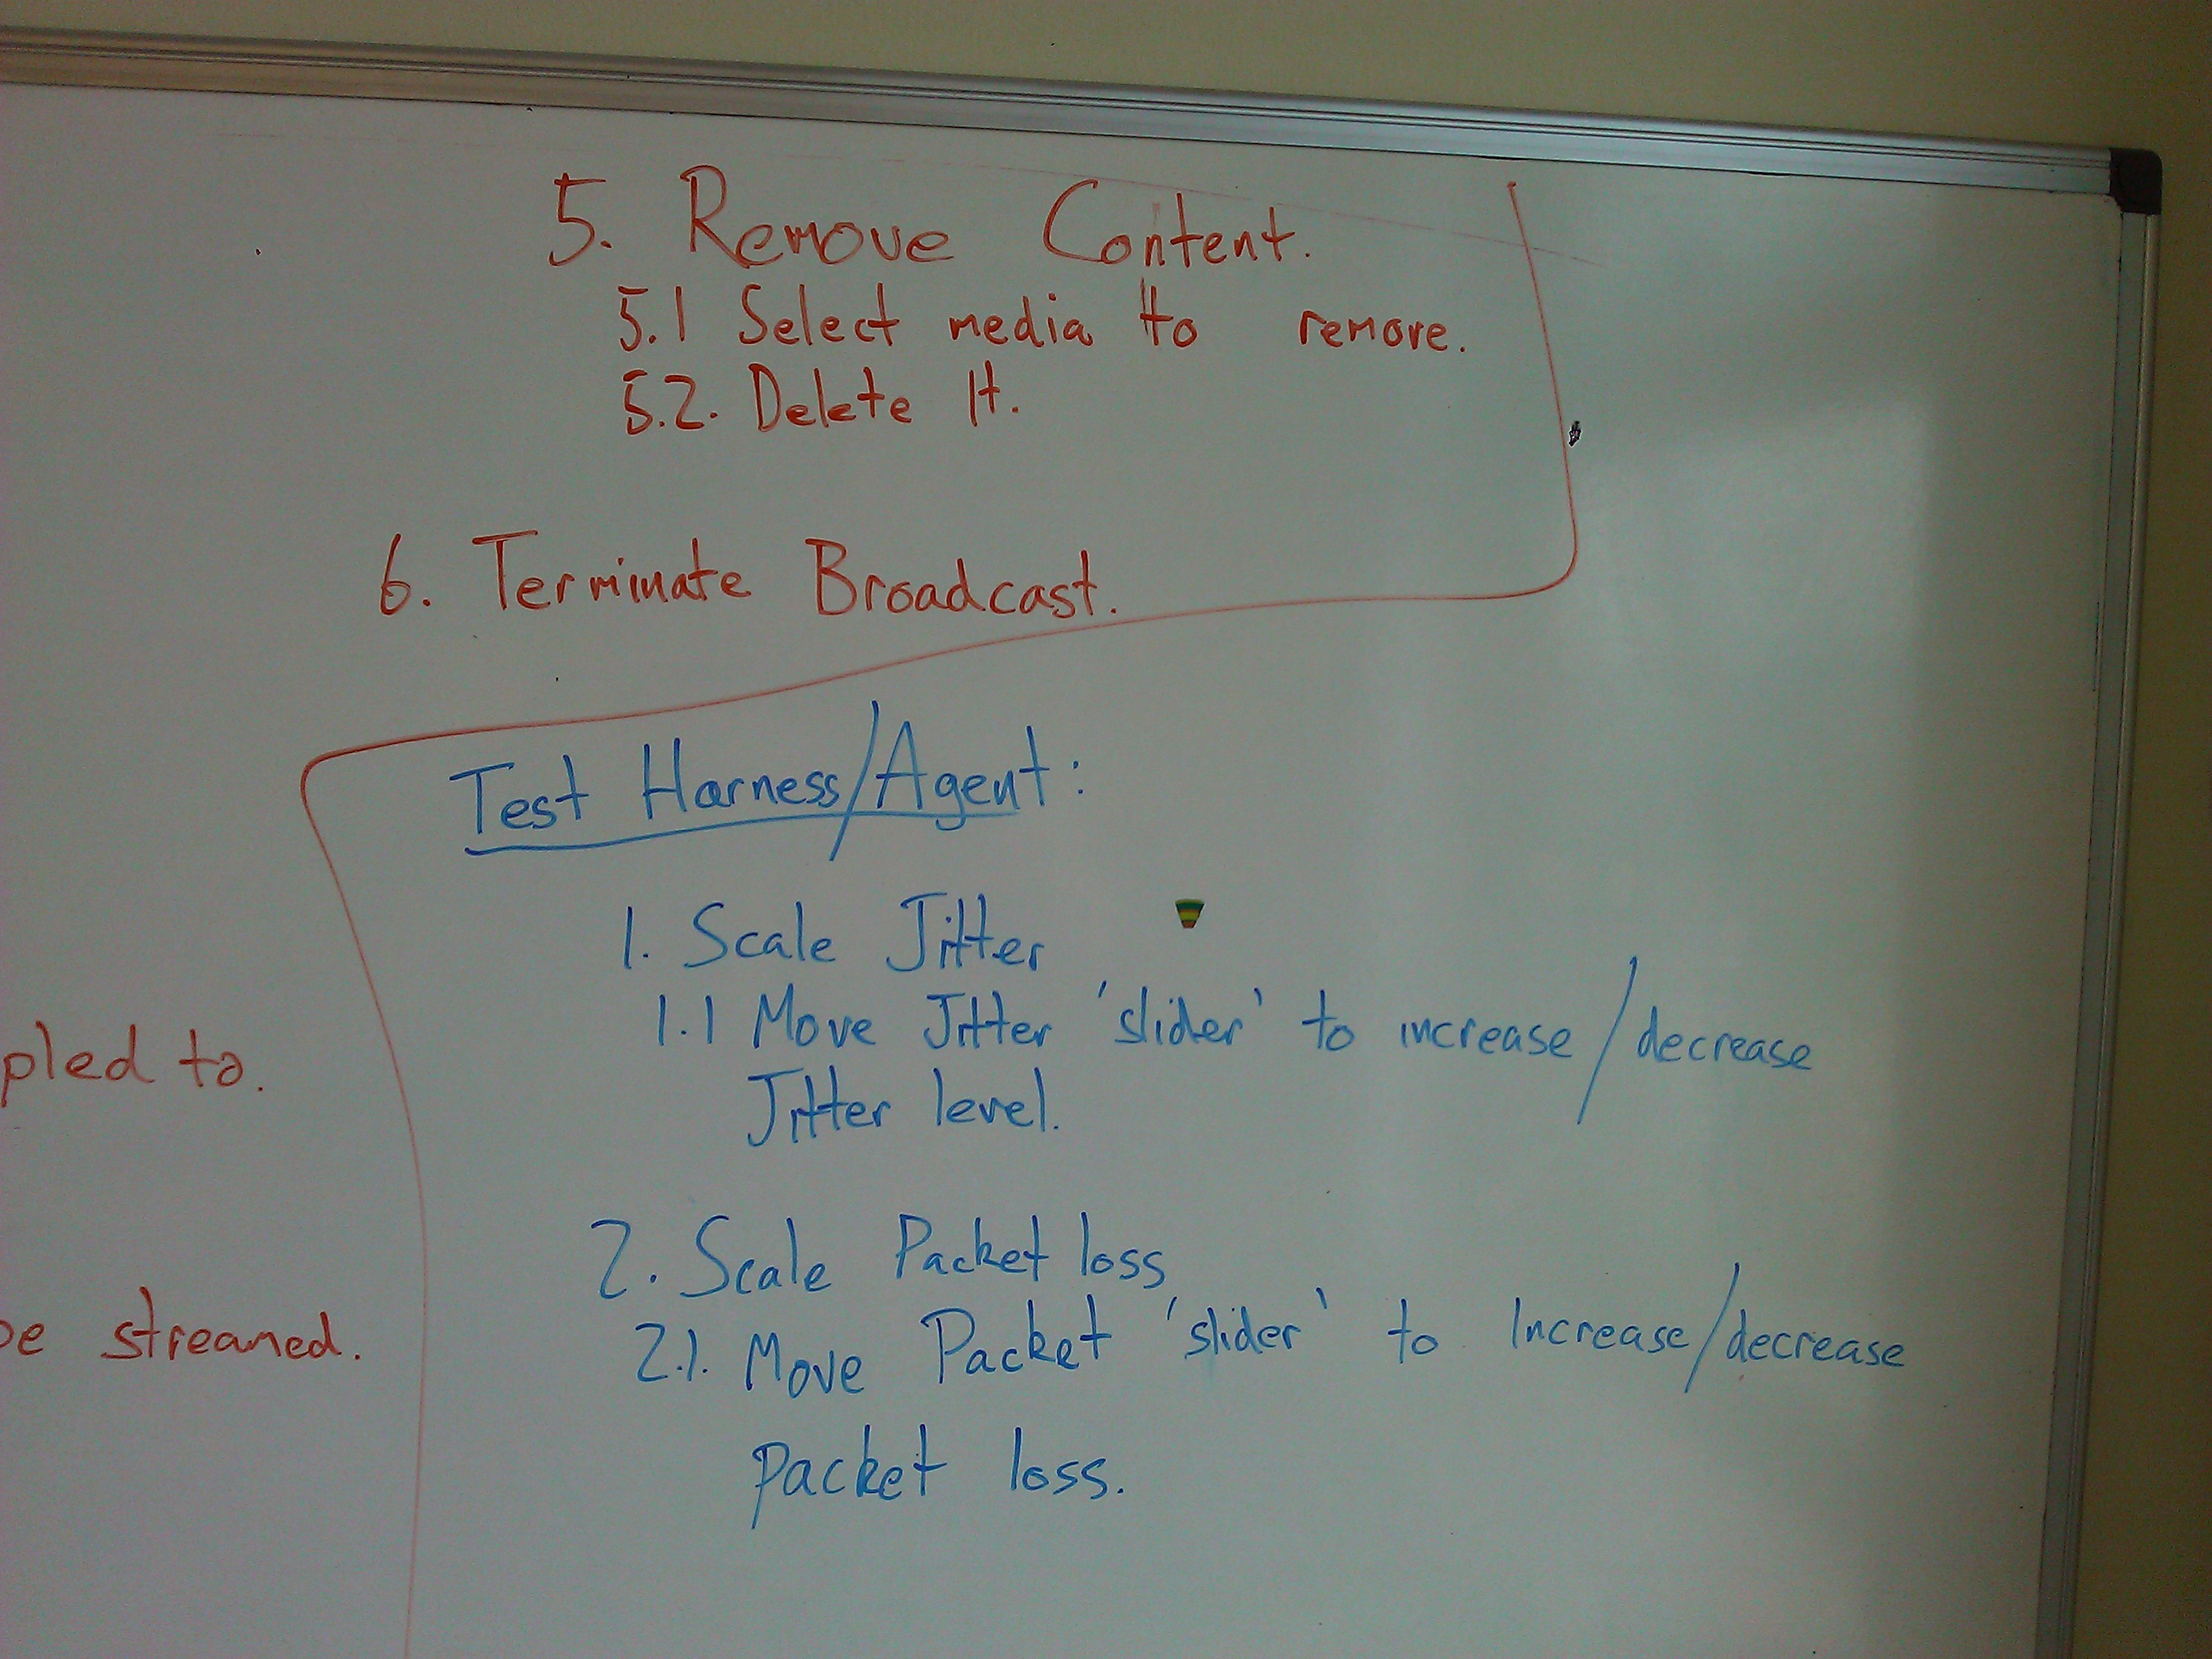 5. Remove Content.
5.1 Select media to remove.
5.2. Delete It.
6. Terminate Broadcast.
Test Harness/Agent:
1. Scale Jitter
1.1 Move Jitter 'slider' to increase/decrease
Jitter level.
2. Scale Packet loss
2.1. Move Packet 'slider' to Increase/decrease
packet loss.
pled to.
be streamed.